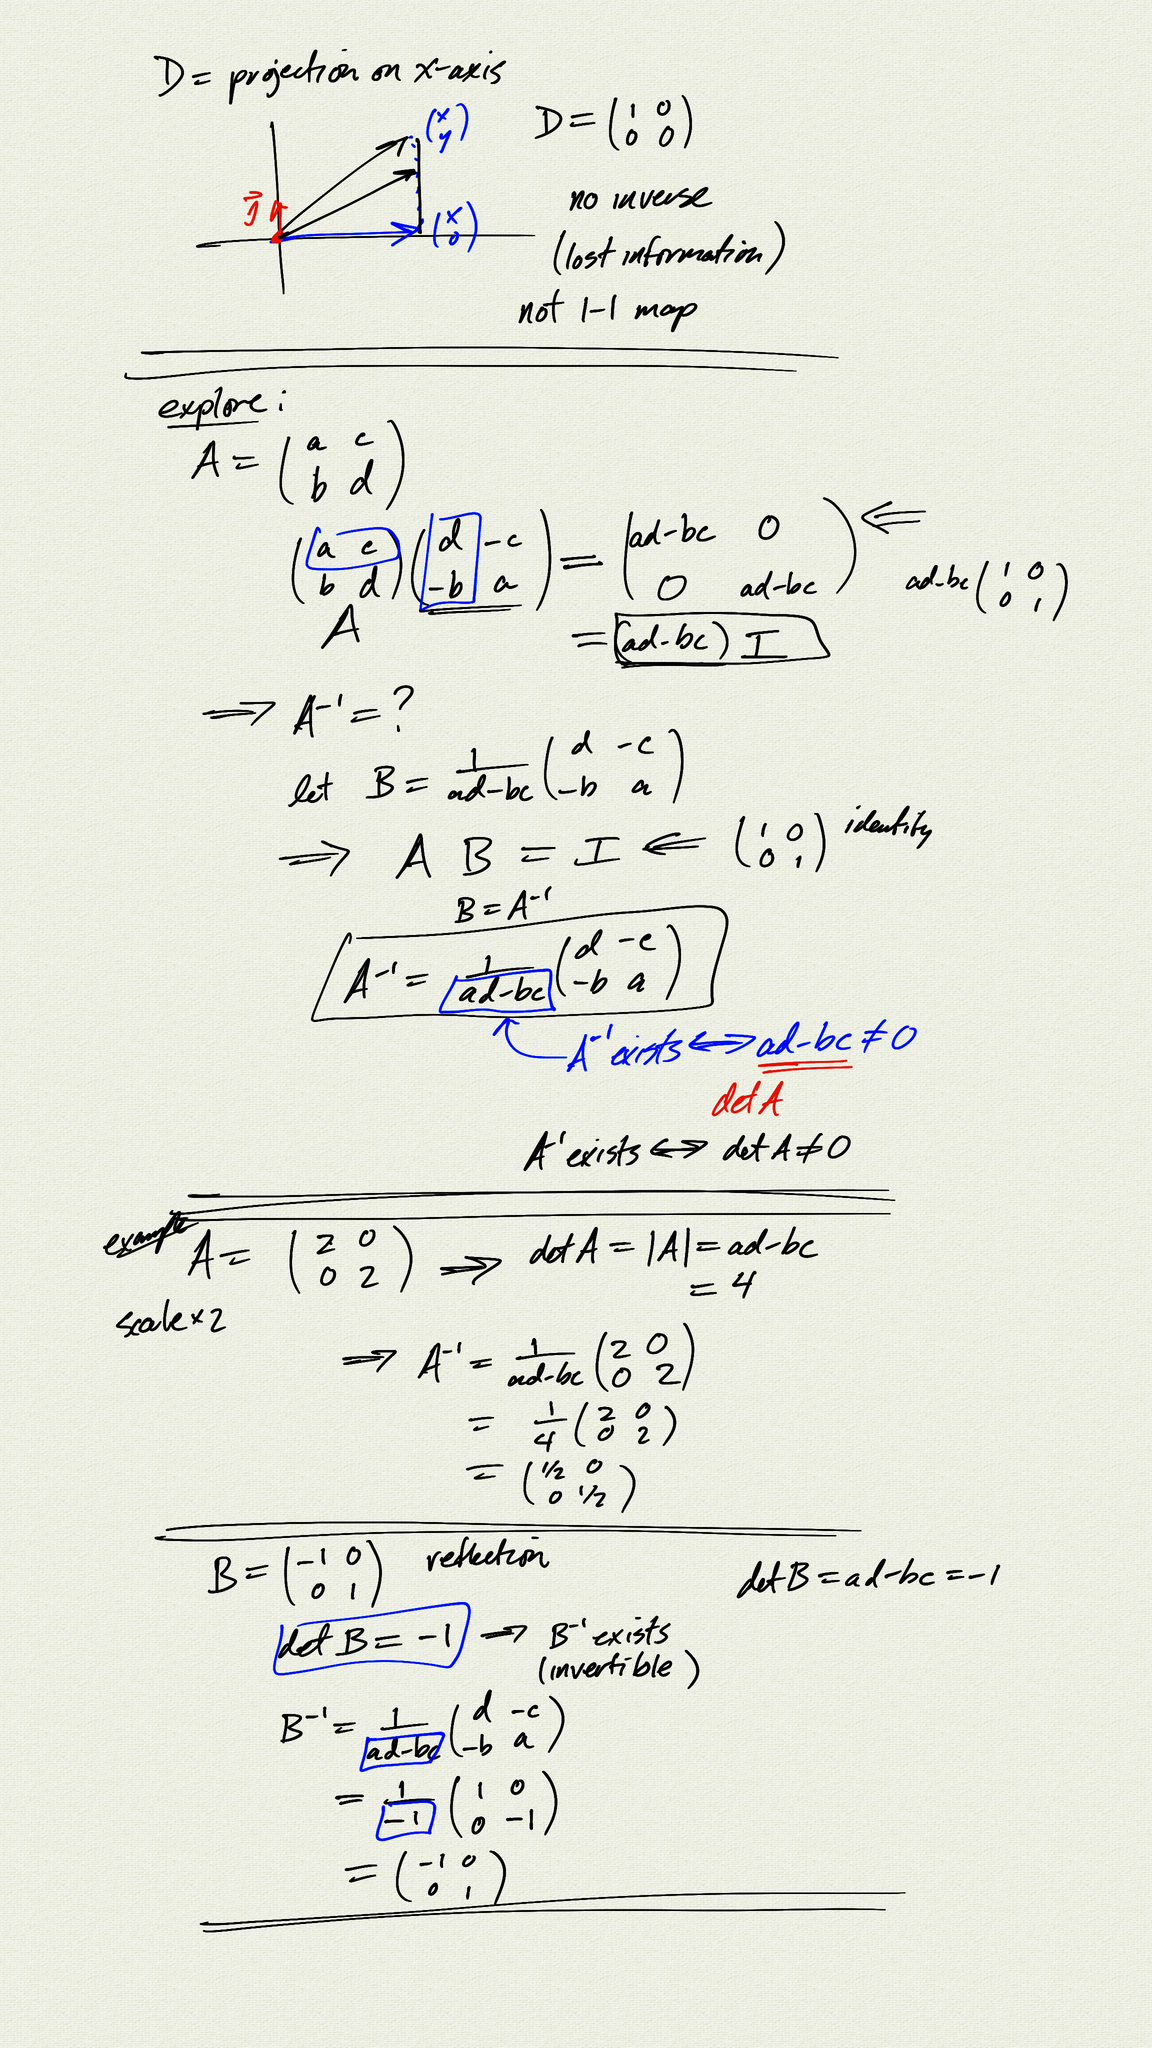 D = projection on x-axis
(x y)
D = (1 0 0 0)
j
(x 0)
no inverse
(lost information)
not 1-1 map
explore:
A = (a c b d)
(a c b d)(d -c -b a) = (ad-bc 0 0 ad-bc) ⇐
ad-bc(1 0 0 1)
A
= (ad-bc) I
⇒ A⁻¹ = ?
let B = 1/ad-bc (d -c -b a)
⇒ A B = I ⇐ (1 0 0 1) identity
B = A⁻¹
A⁻¹ = 1/ad-bc (d -c -b a)
A⁻¹ exists ⟺ ad-bc ≠ 0
det A
A⁻¹ exists ⟺ det A ≠ 0
example
A = (2 0 0 2) ⇒ det A = |A| = ad-bc
= 4
scale × 2
⇒ A⁻¹ = 1/ad-bc (2 0 0 2)
= 1/4 (2 0 0 2)
= (1/2 0 0 1/2)
B = (-1 0 0 1) reflection
det B = ad-bc = -1
det B = -1 → B⁻¹ exists
(invertible)
B⁻¹ = 1/ad-bc (d -c -b a)
= 1/-1 (1 0 0 -1)
= (-1 0 0 1)